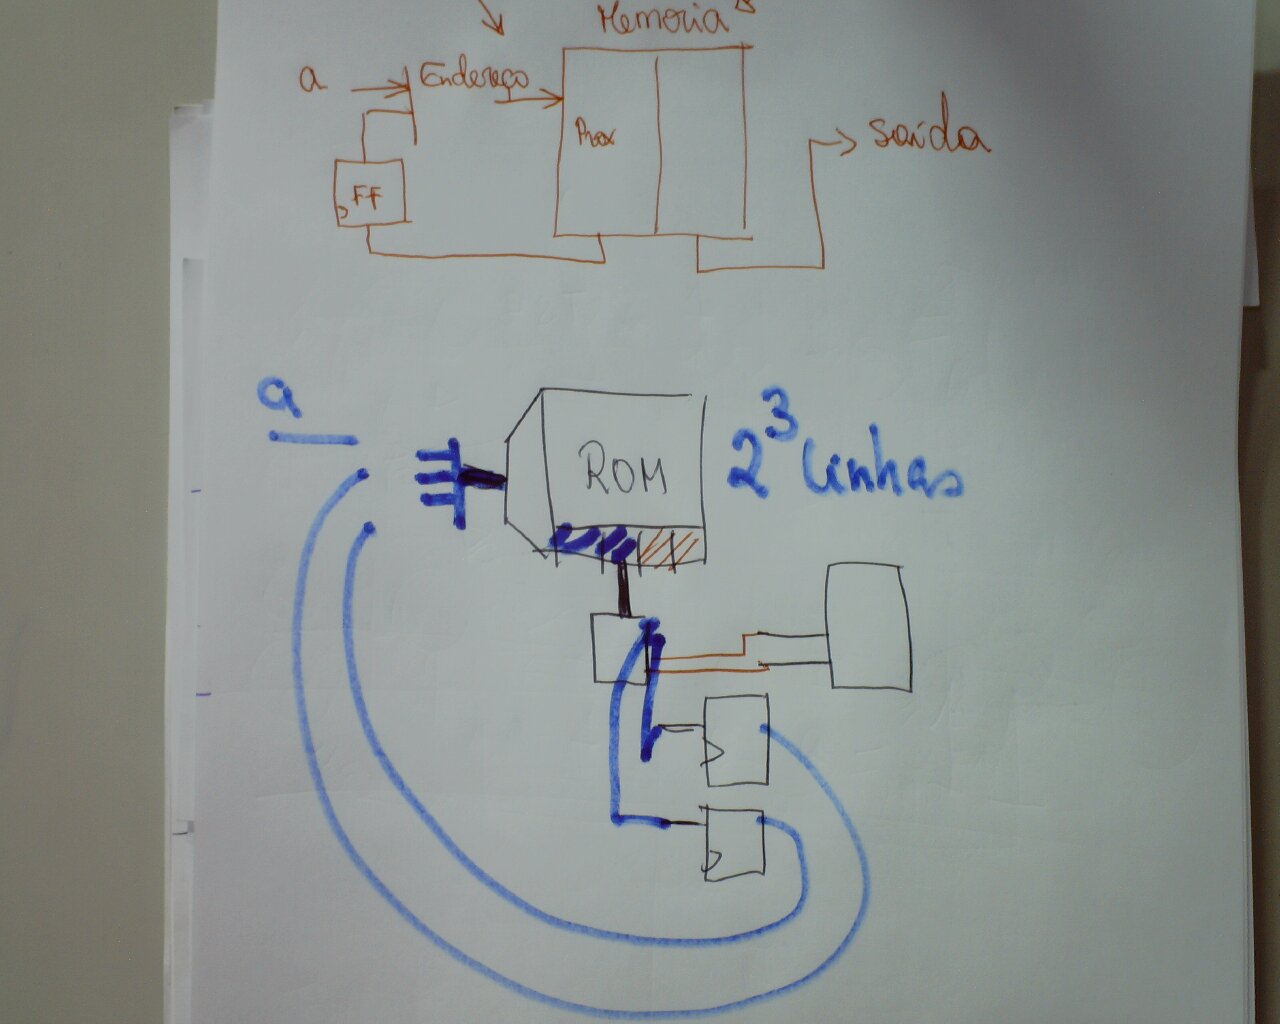 Memoria
a
Endereço
Prox
saída
FF
a
ROM
2³ linhas